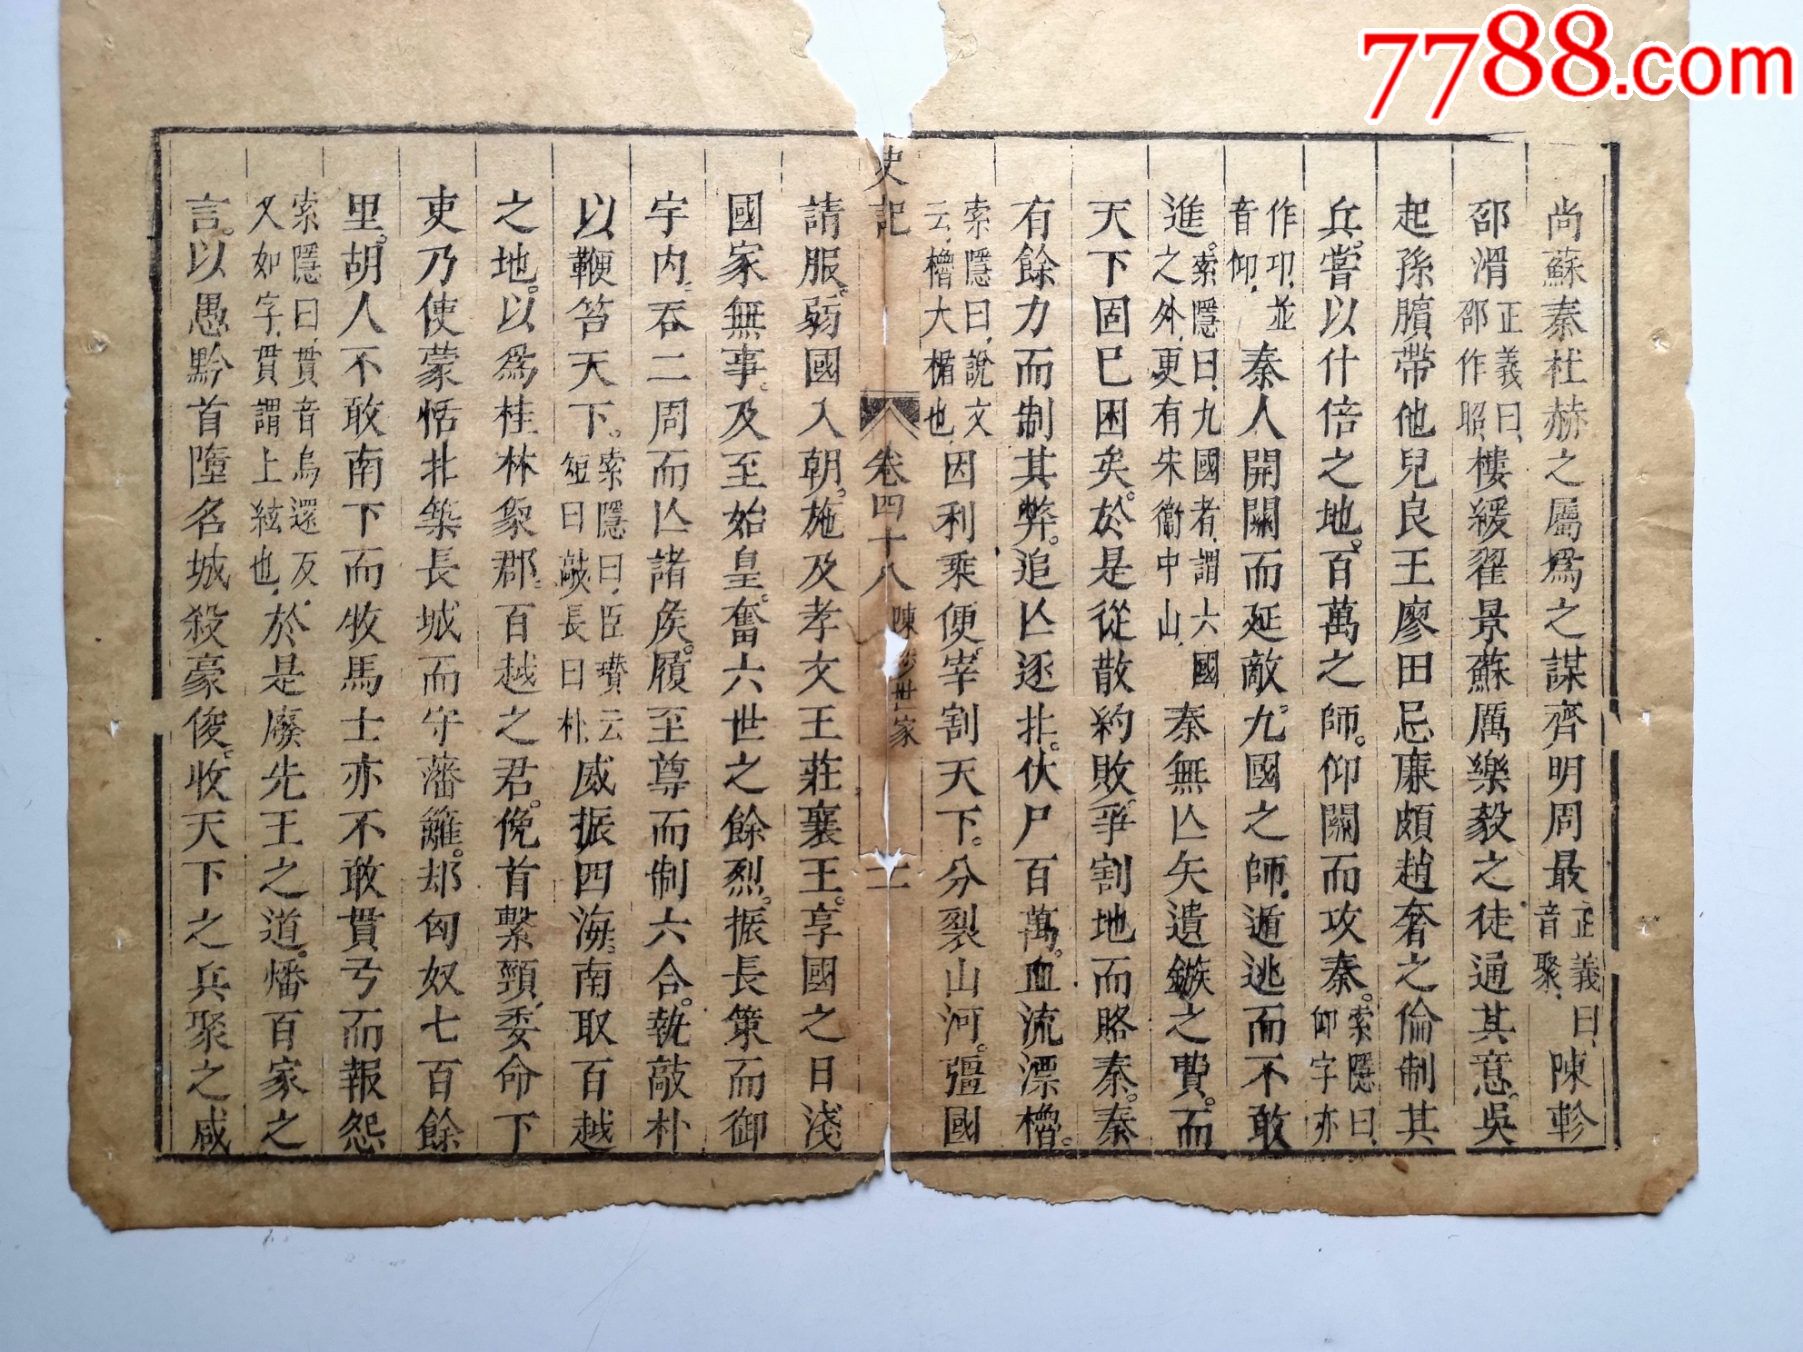 7788.com
尚蘇秦杜赫之屬爲之謀齊明周最正義曰音聚陳軫
邵滑正義曰邵作昭樓緩翟景蘇厲樂毅之徒通其意吳
起孫臏帶他兒良王廖田忌廉頗趙奢之倫制其
兵嘗以什倍之地百萬之師仰關而攻秦索隱曰仰字亦
作卬並音仰秦人開關而延敵九國之師遁逃而不敢
進索隱曰九國者謂六國之外更有宋衞中山秦無亾矢遺鏃之費而
天下固已困矣於是從散約敗爭割地而賂秦秦
有餘力而制其弊追亾逐北伏尸百萬血流漂櫓
索隱曰說文云櫓大楯也因利乘便宰割天下分裂山河彊國
史記 卷四十八 陳涉世家 二
請服弱國入朝施及孝文王莊襄王享國之日淺
國家無事及至始皇奮六世之餘烈振長策而御
宇內吞二周而亾諸侯履至尊而制六合執敲朴
以鞭笞天下索隱曰臣瓚云短曰敲長曰朴威振四海南取百越
之地以爲桂林象郡百越之君俛首繫頸委命下
吏乃使蒙恬北築長城而守藩籬却匈奴七百餘
里胡人不敢南下而牧馬士亦不敢貫弓而報怨
索隱曰貫音烏還反又如字貫謂上絃也於是廢先王之道燔百家之
言以愚黔首墮名城殺豪俊收天下之兵聚之咸